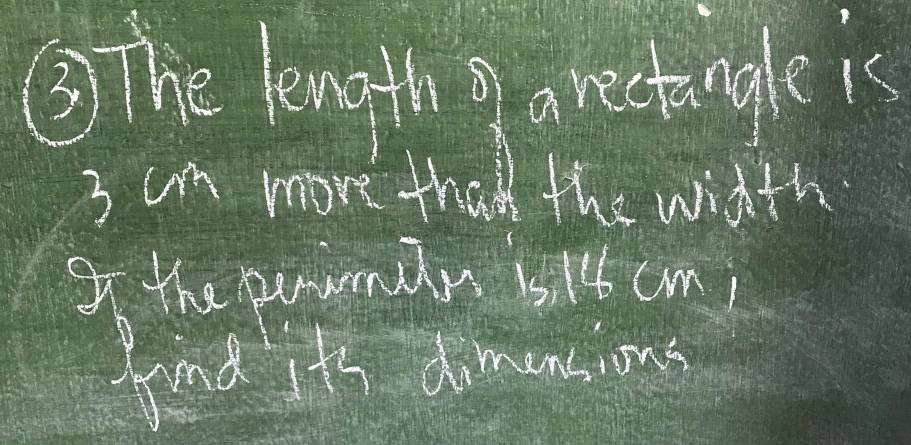 ③ The length of a rectangle is
3 cm more than the width.
If the perimeter is 18 cm,
find its dimensions